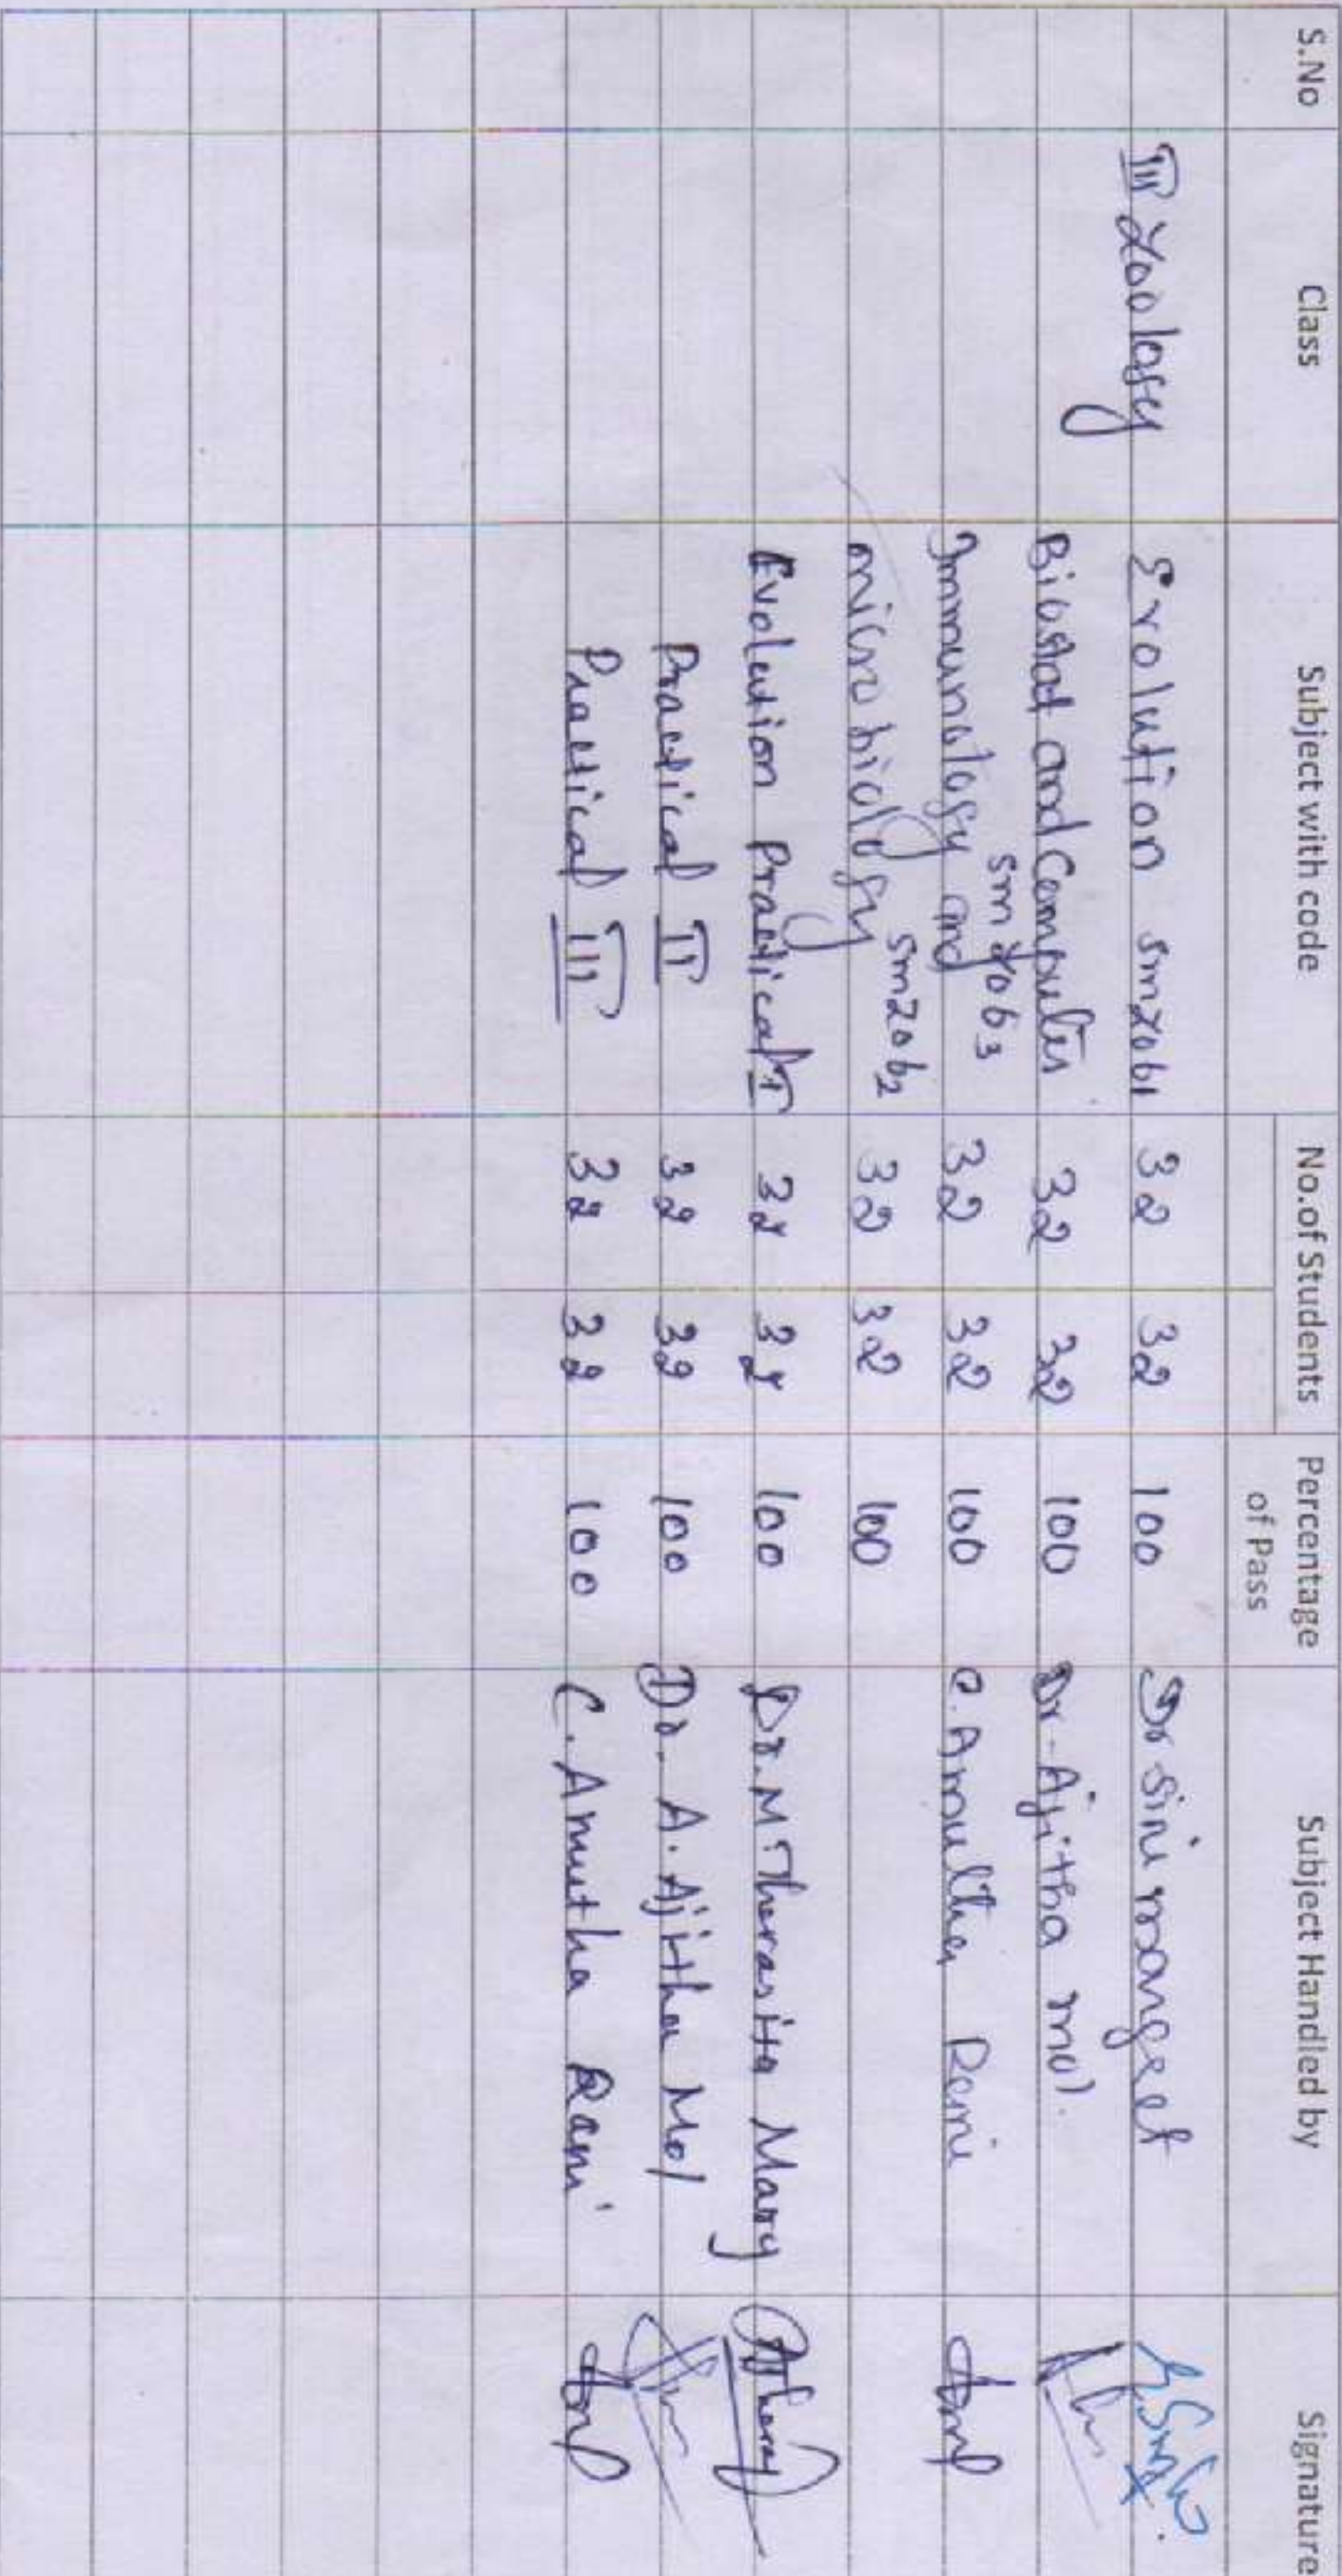 S.No Class Subject with code No.of Students Percentage of Pass Subject Handled by Signature
III Zoology Evolution SMZO61 32 32 100 Dr Sini margret
Biostat and Computer SMZO63 32 32 100 Dr. Ajitha mol.
Immunology and 32 32 100 C. Amutha Rani
microbiology SMZO62 32 32 100
Evolution Practical I 32 32 100 Dr. M. Therasita Mary
Practical II 32 32 100 Dr. A. Ajitha Mol
Practical III 32 32 100 C. Amutha Rani